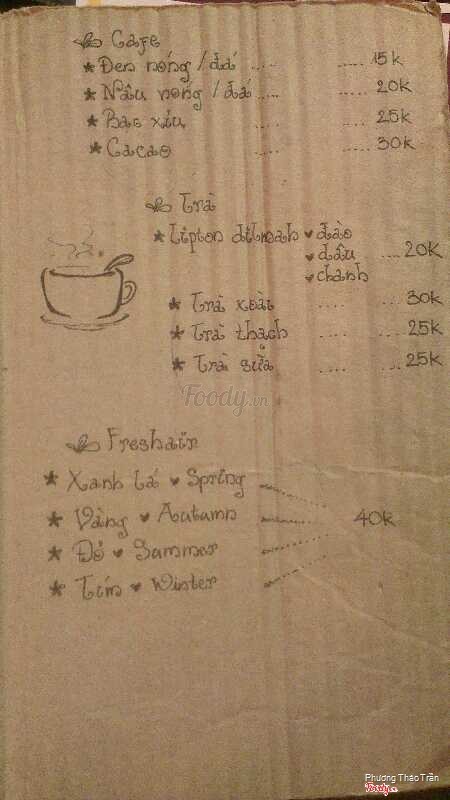 Cafe
* Đen nóng / đá ..... ..... 15k
* Nâu nóng / đá .... ..... 20k
* Bạc xỉu ..... ..... 25k
* Cacao ..... ..... 30k
Trà
* Lipton dilmah ♥ đào
♥ dâu .... 20k
♥ chanh
* Trà xoài .... .... 30k
* Trà thạch .... .... 25k
* Trà sữa .... .... 25k
Foody.vn
Freshair
* Xanh lá ♥ Spring
* Vàng ♥ Autumn 40k
* Đỏ ♥ Summer
* Tím ♥ Winter
Phương Thảo Trần
Foody.vn